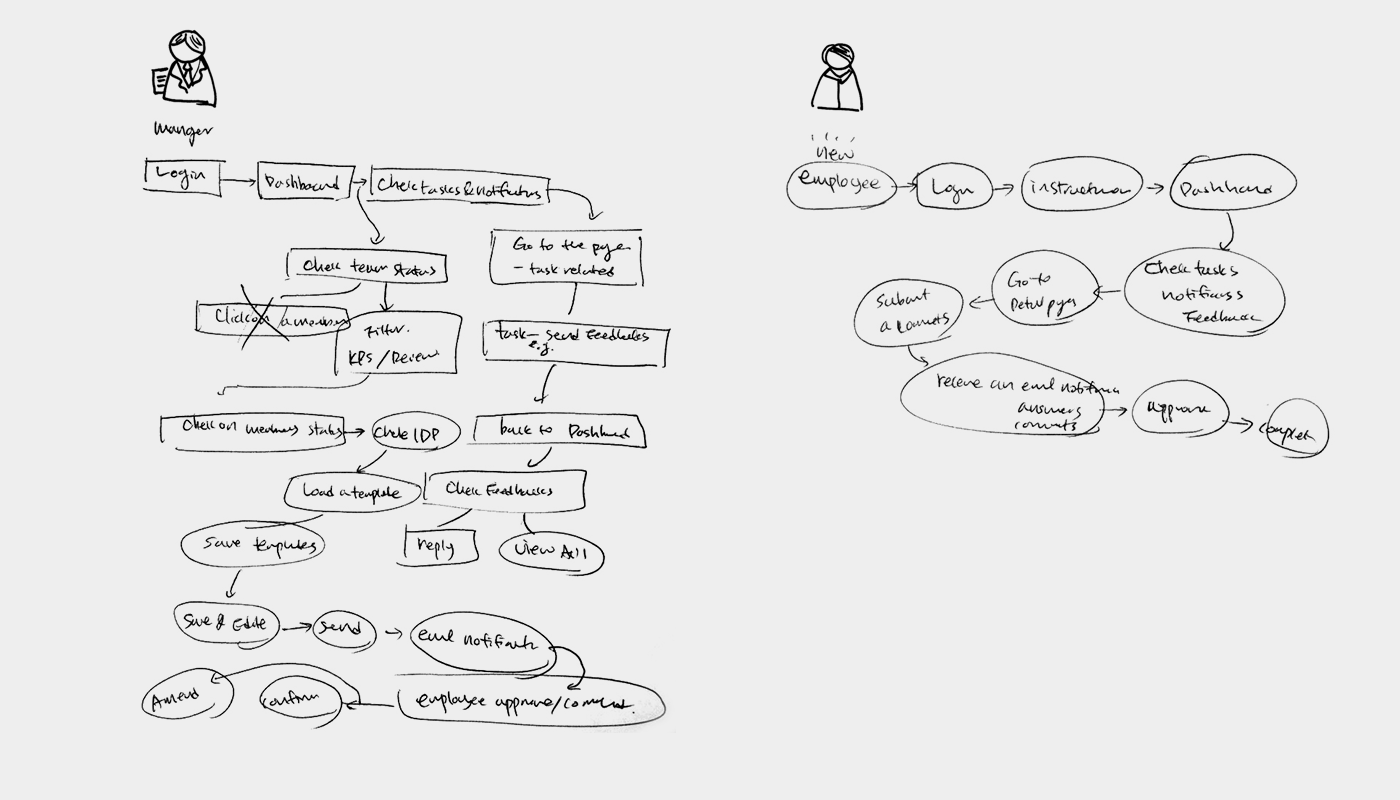 manger
Login
Dashboard
Check tasks & notifications
Check team status
Go to the page
- task related
Click on a member
Filter.
KPS / Review
task - send Feedbacks
e.g.
Check on members status
Check IDP
back to Dashboard
Load a template
Check Feedbacks
Save templates
reply
View All
Save & Edit
Send
email notification
Amend
Confirm
employee approve/comment.
new
employee
Login
instruction
Dashboard
Check tasks
notifications
Feedback
Go to
Detail page
Submit
a comments
receive an email notification
answers
comments
approve
complete